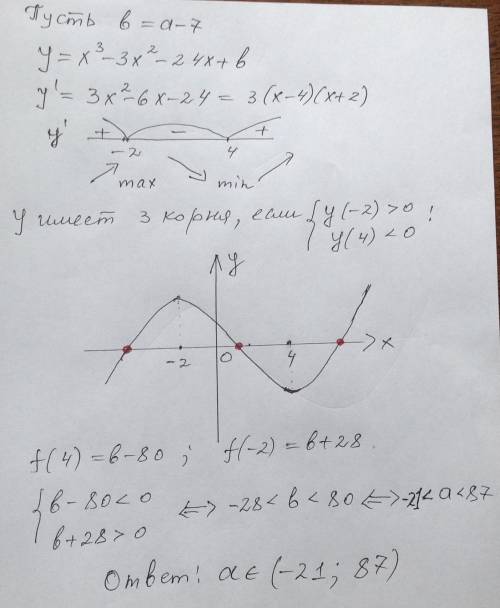 Пусть b = a - 7
y = x³ - 3x² - 24x + b
y' = 3x² - 6x - 24 = 3(x-4)(x+2)
y' + - +
-2 4
max min
y имеет 3 корня, если { y(-2) > 0 !
y(4) < 0
y
-2 0 4 x
f(4) = b - 80 ; f(-2) = b + 28 .
{ b - 80 < 0 ⇔ -28 < b < 80 ⇔ -21 < a < 87
b + 28 > 0
Ответ: a ∈ (-21; 87)